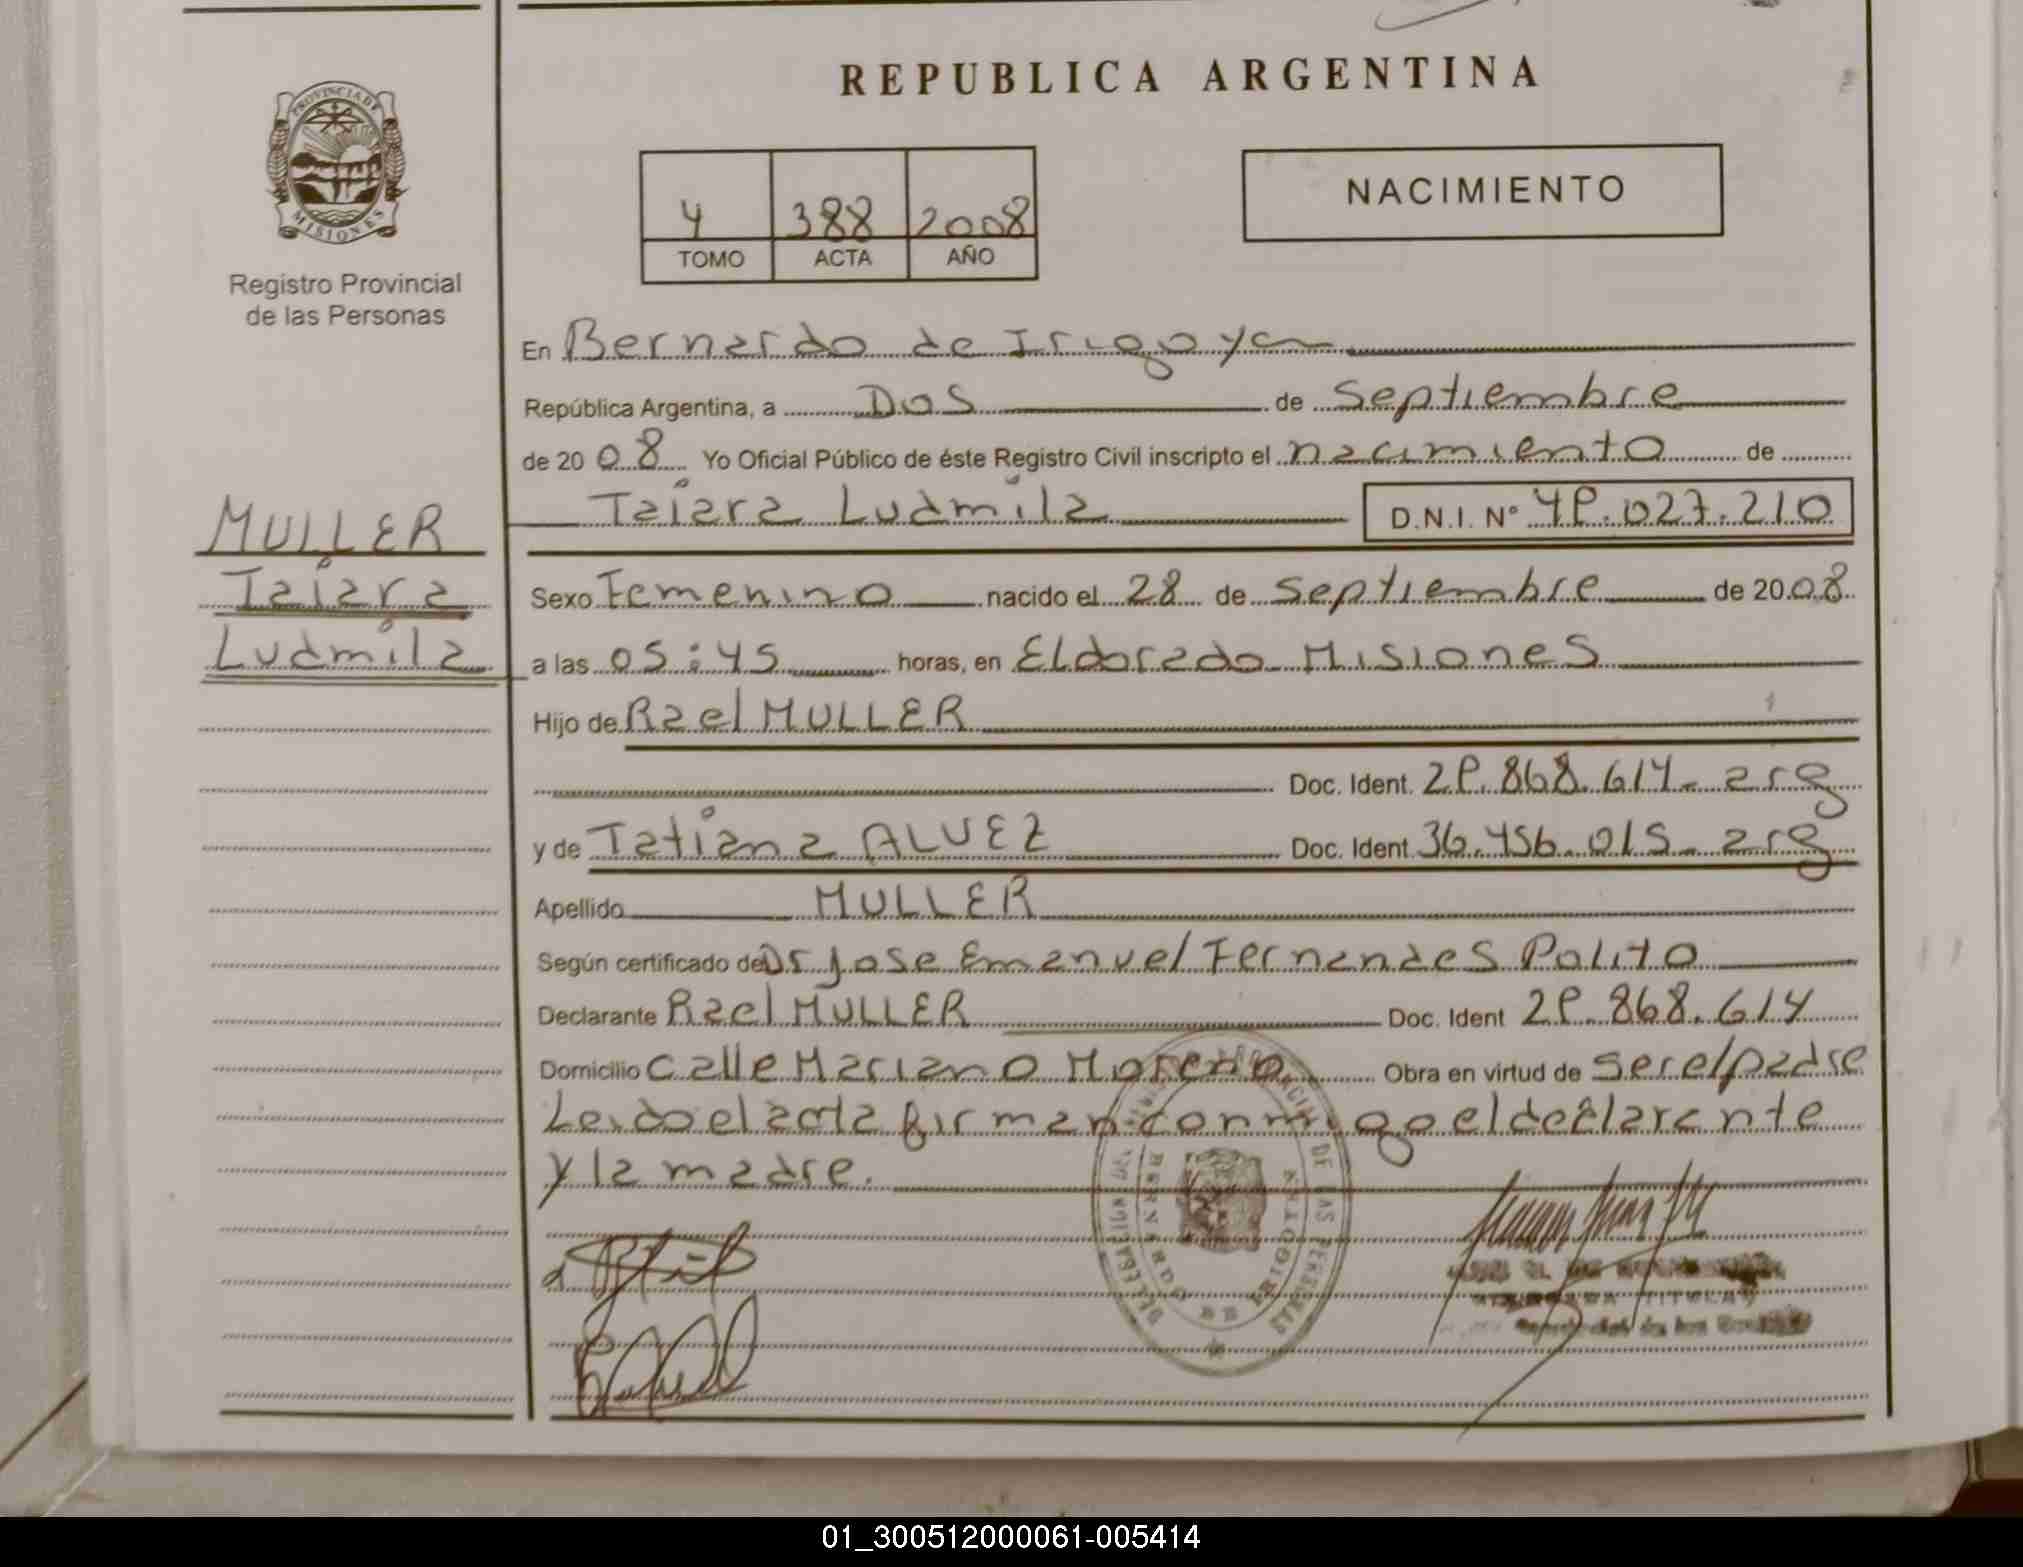 REPUBLICA ARGENTINA
PROVINCIA DE MISIONES
Registro Provincial
de las Personas
4 388 2008
TOMO ACTA AÑO
NACIMIENTO
En Bernardo de Irigoyen
República Argentina, a Dos de Septiembre
de 2008 Yo Oficial Público de éste Registro Civil inscripto el nacimiento de
Taiara Ludmila D.N.I. Nº 49.027.210
MULLER
Taiara
Ludmila
Sexo Femenino nacido el 28 de Septiembre de 2008
a las 05:45 horas, en Eldorado Misiones
Hijo de Rael MULLER
Doc. Ident. 29.868.614 - arg
y de Tatiana ALVEZ Doc. Ident 36.456.015 - arg
Apellido MULLER
Según certificado de Dr Jose Emanuel Fernandes Polito
Declarante Rael MULLER Doc. Ident 29.868.614
Domicilio Calle Mariano Moreno Obra en virtud de ser el padre
Leido el acta firman conmigo el declarante
y la madre.
DE LAS PERSONAS
BERNARDO DE IRIGOYEN
TITULAR
01_300512000061-005414